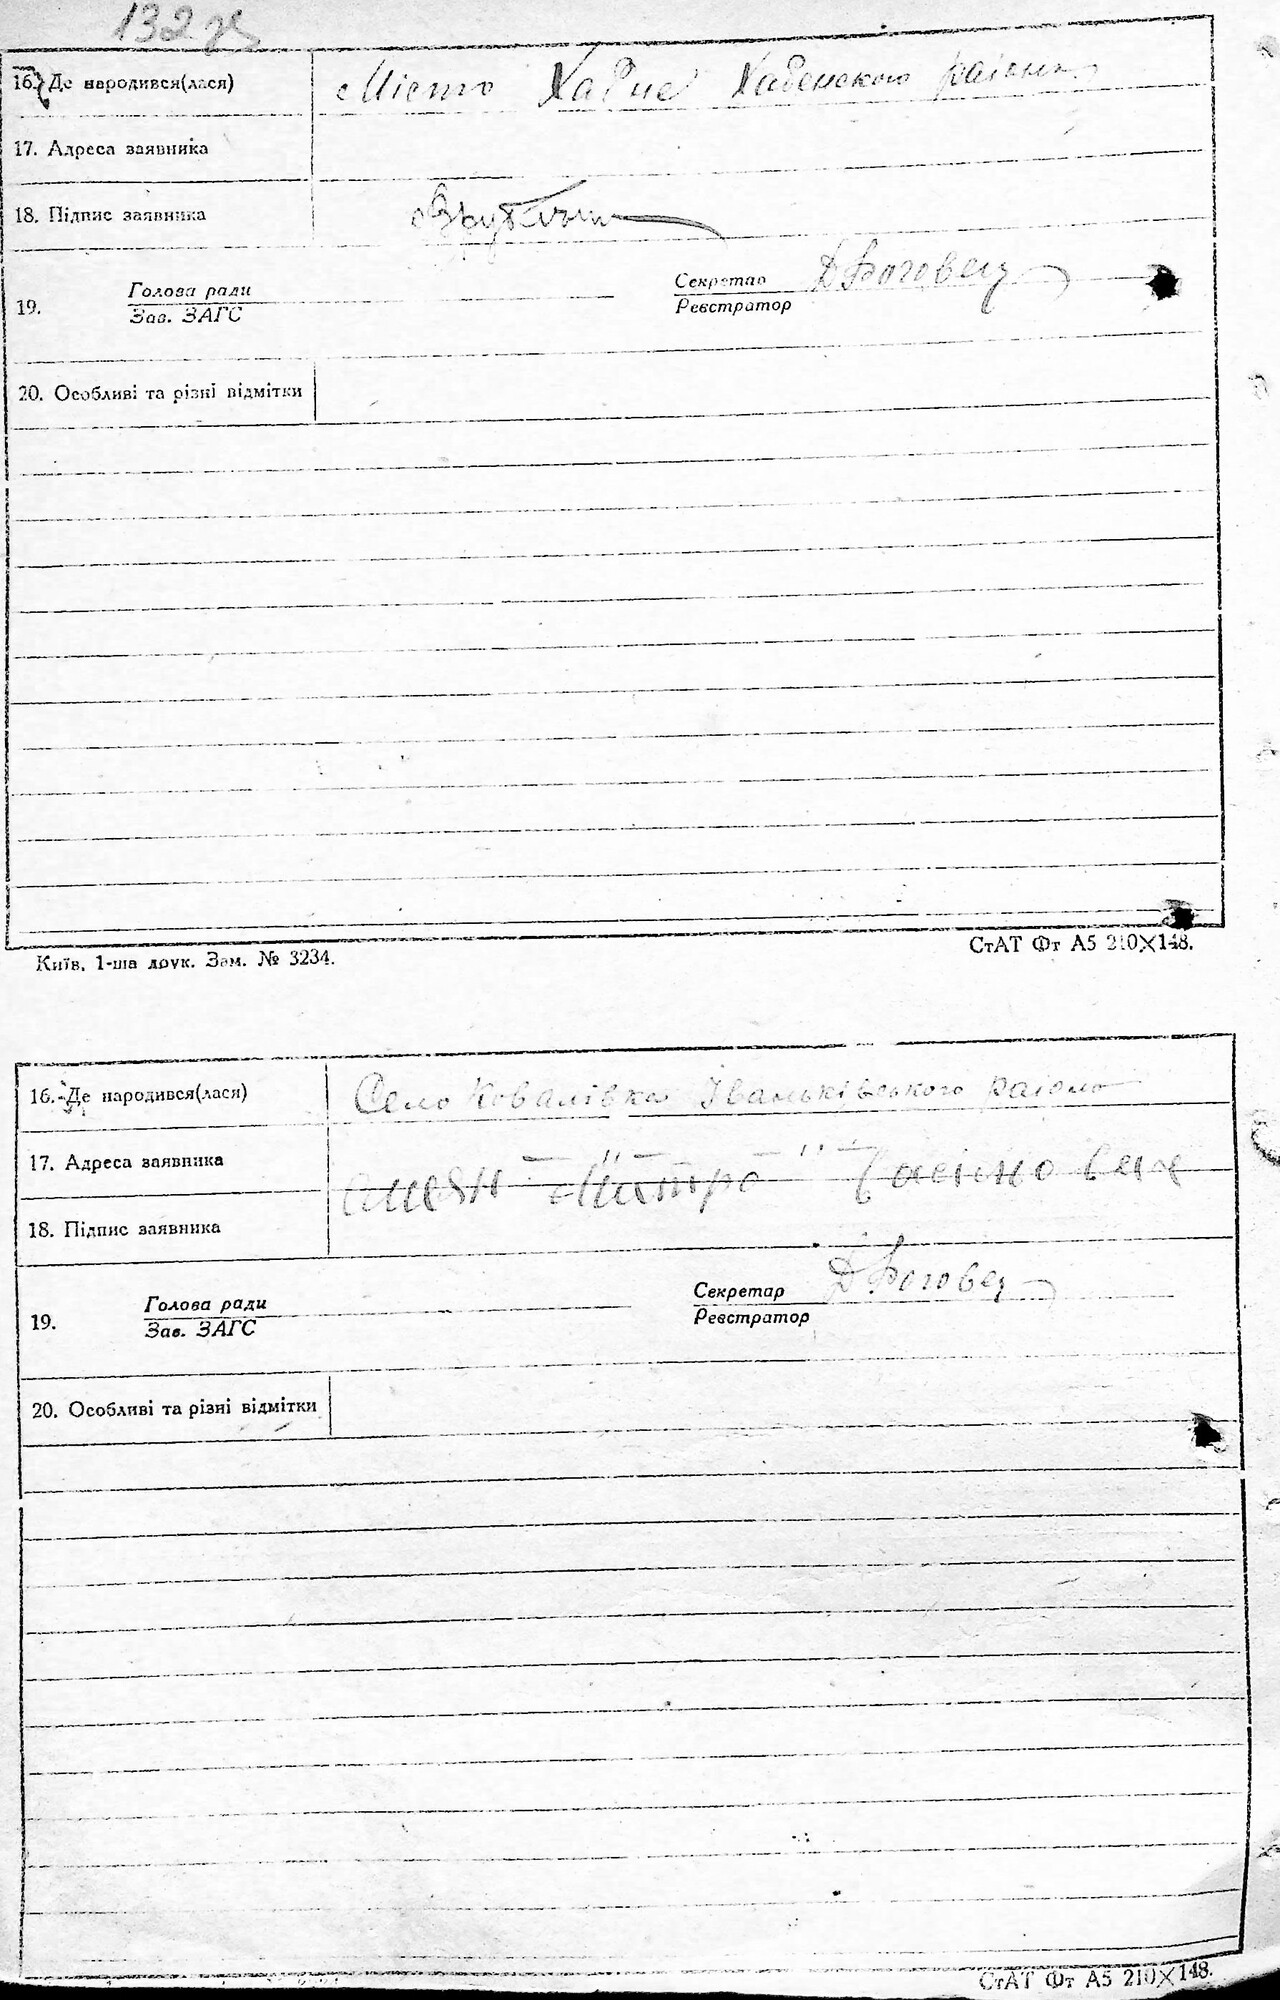 132 зв
16. Де народився(лася) Місто Хабне Хабенского району
17. Адреса заявника
18. Підпис заявника
19. Голова ради
Зав. ЗАГС
Секретар Д Боговец
Реєстратор
20. Особливі та різні відмітки
Київ. 1-ша друк. Зам. № 3234.
СтАТ Фт А5 210×148.
16. Де народився(лася) Село Ковалівка Іваньківського району
17. Адреса заявника
18. Підпис заявника
19. Голова ради
Зав. ЗАГС
Секретар Д Боговец
Реєстратор
20. Особливі та різні відмітки
СтАТ Фт А5 210×148.